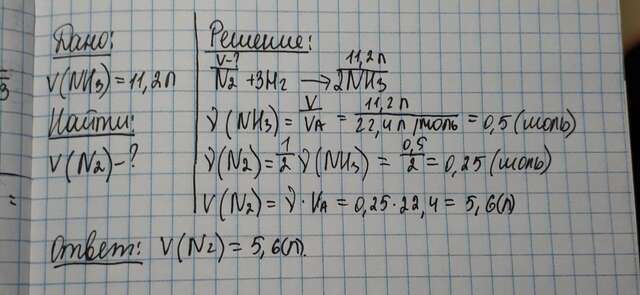 Дано:
V(NH3)=11,2л
Найти:
V(N2)-?
Решение:
V-? 11,2л
N2 +3H2 → 2NH3
ν(NH3)= V/VA = 11,2л/22,4л/моль = 0,5(моль)
ν(N2)= 1/2 ν(NH3) = 0,5/2 = 0,25(моль)
V(N2)= ν·VA = 0,25·22,4 = 5,6(л)
Ответ: V(N2)=5,6(л).